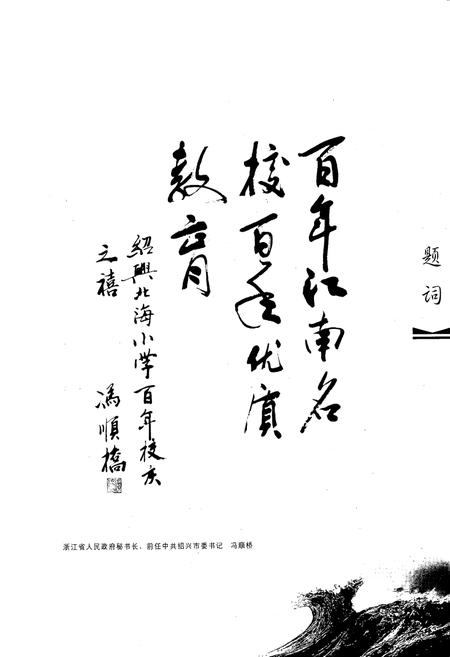 题词
百年江南名
校百年优质
教育
紹興北海小学百年校庆
之禧
馮順橋
浙江省人民政府秘书长、前任中共绍兴市委书记 冯顺桥